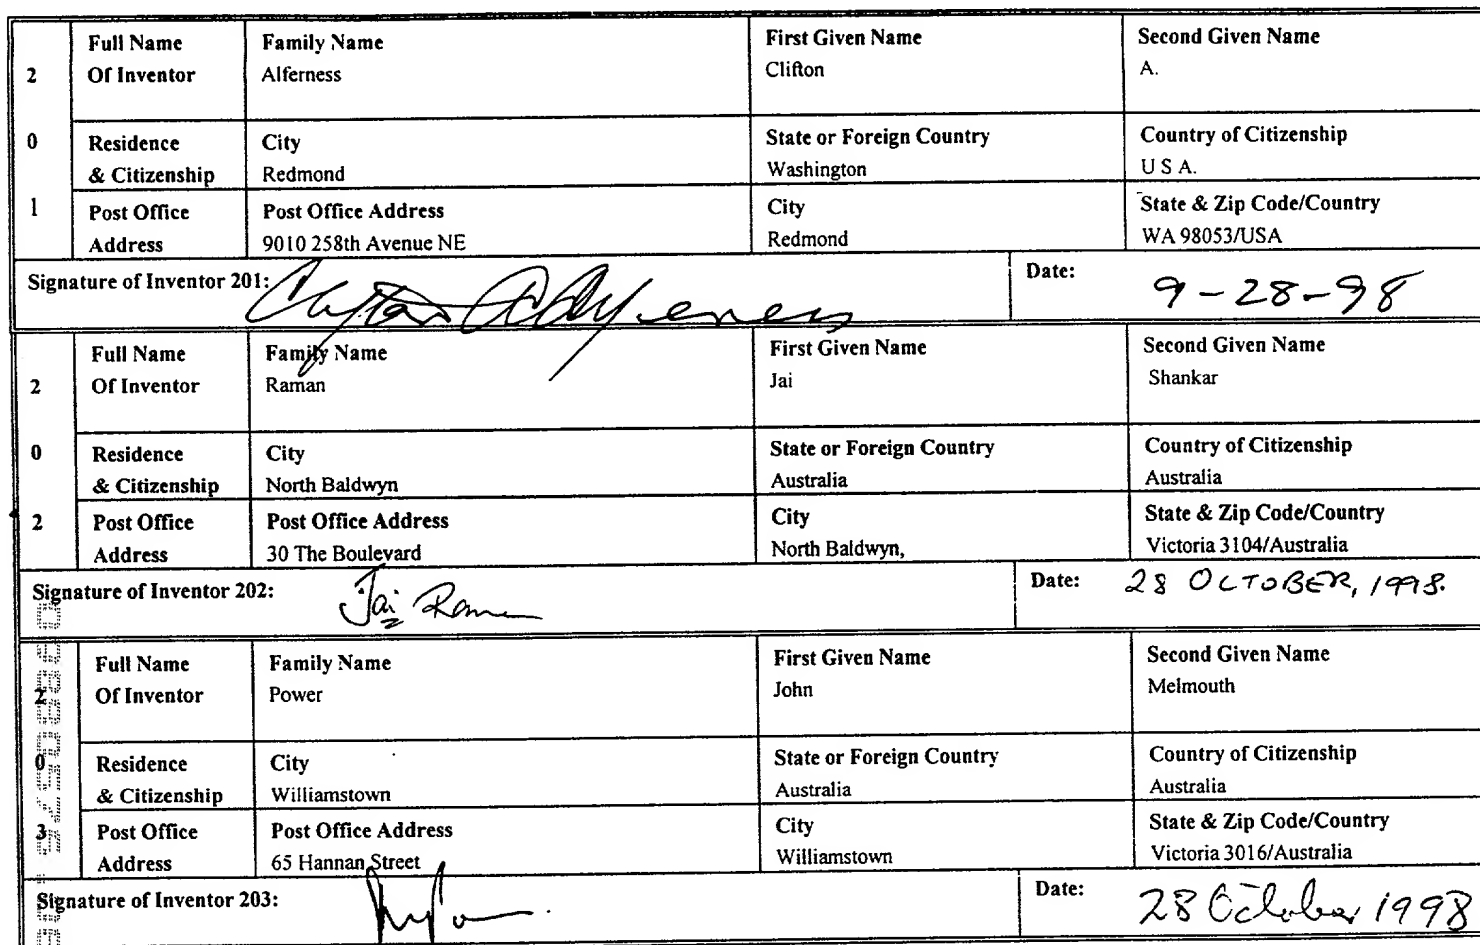 2 Full Name Of Inventor Family Name Alferness First Given Name Clifton Second Given Name A.
0 Residence & Citizenship City Redmond State or Foreign Country Washington Country of Citizenship U S A.
1 Post Office Address Post Office Address 9010 258th Avenue NE City Redmond State & Zip Code/Country WA 98053/USA
Signature of Inventor 201: Clifton A Alferness Date: 9-28-98
2 Full Name Of Inventor Family Name Raman First Given Name Jai Second Given Name Shankar
0 Residence & Citizenship City North Baldwyn State or Foreign Country Australia Country of Citizenship Australia
2 Post Office Address Post Office Address 30 The Boulevard City North Baldwyn, State & Zip Code/Country Victoria 3104/Australia
Signature of Inventor 202: Jai Raman Date: 28 OCTOBER, 1998.
2 Full Name Of Inventor Family Name Power First Given Name John Second Given Name Melmouth
0 Residence & Citizenship City Williamstown State or Foreign Country Australia Country of Citizenship Australia
3 Post Office Address Post Office Address 65 Hannan Street City Williamstown State & Zip Code/Country Victoria 3016/Australia
Signature of Inventor 203: Date: 28 October 1998